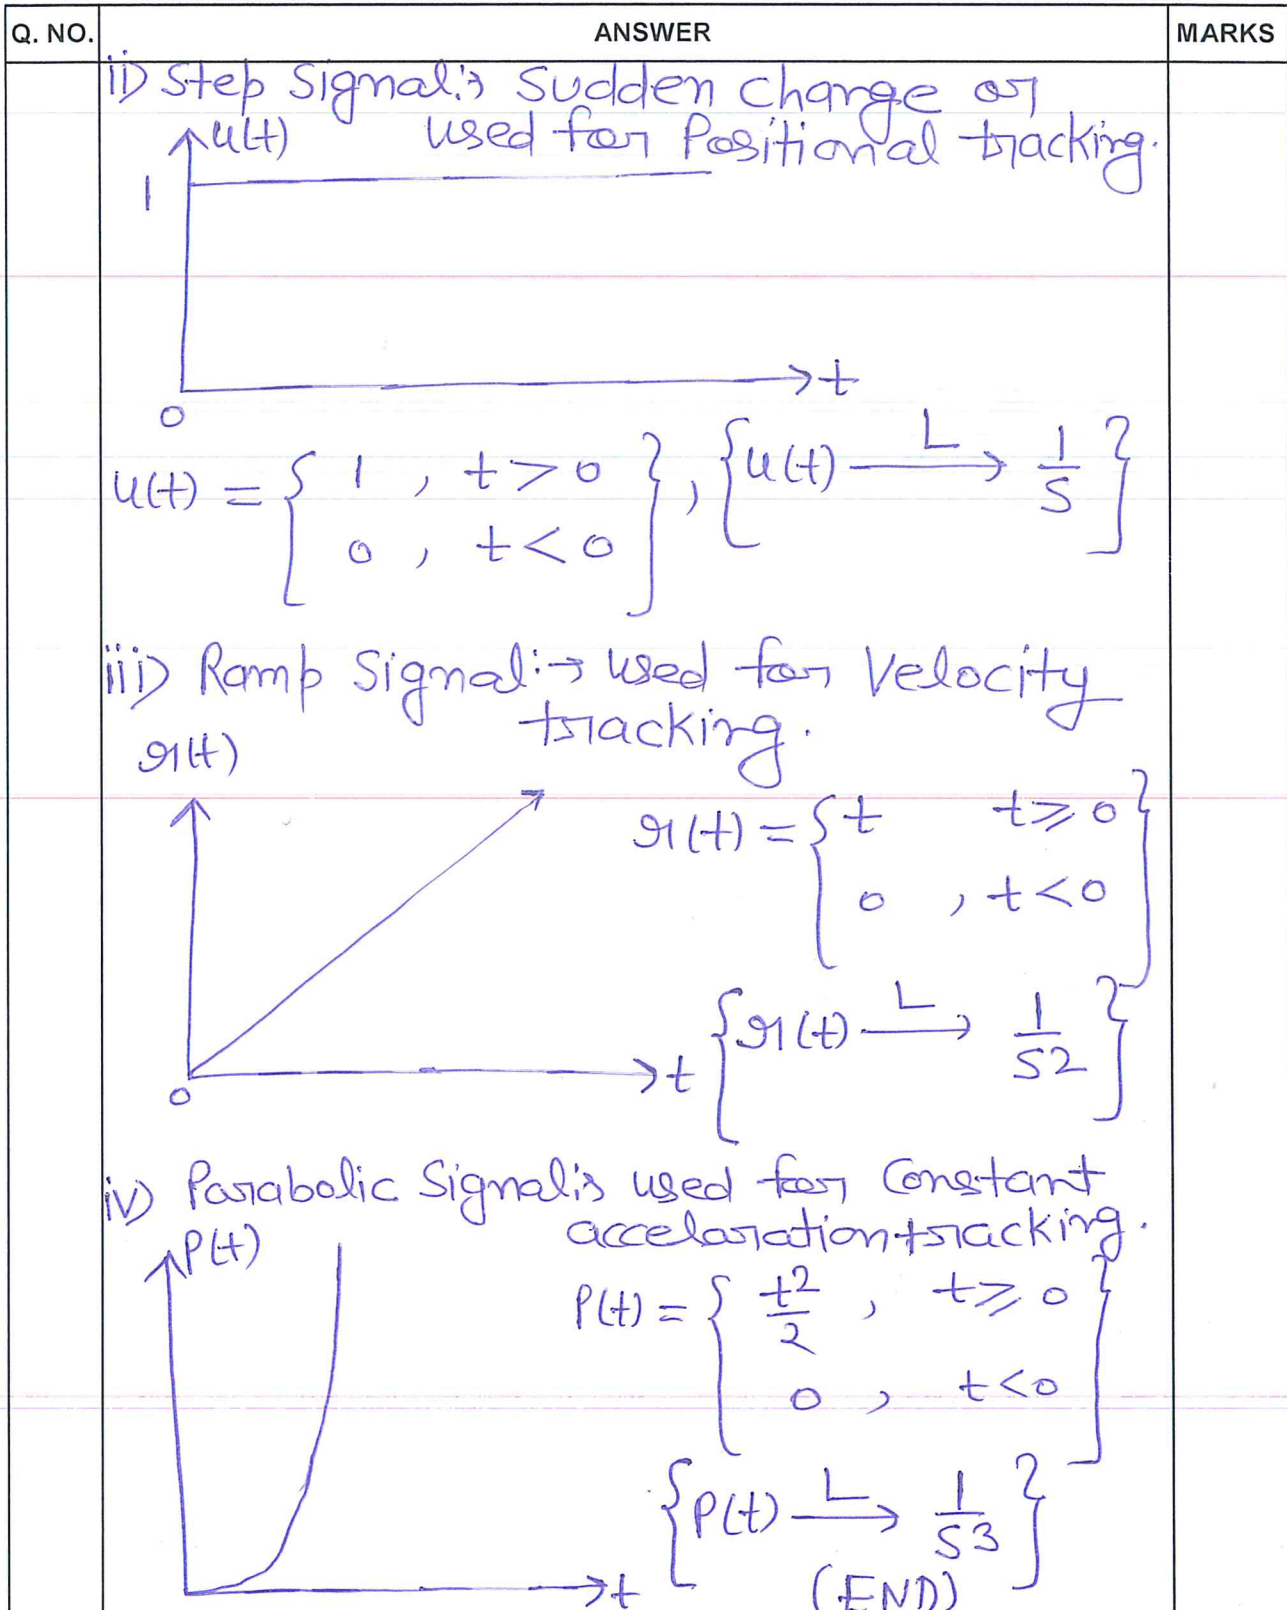 Q. NO. ANSWER MARKS
ii) Step Signal:→ Sudden change or
used for Positional tracking.
u(t)
1
t
0
u(t) = { 1 , t > 0
0 , t < 0 } , { u(t) —L→ 1/S }
iii) Ramp Signal:→ used for Velocity
tracking.
r(t)
r(t) = { t t ≥ 0
0 , t < 0 }
{ r(t) —L→ 1/S2 }
t
0
iv) Parabolic Signal:→ used for Constant
accelaration tracking.
P(t)
P(t) = { t²/2 , t ≥ 0
0 , t < 0 }
{ P(t) —L→ 1/S3 }
t
(END)